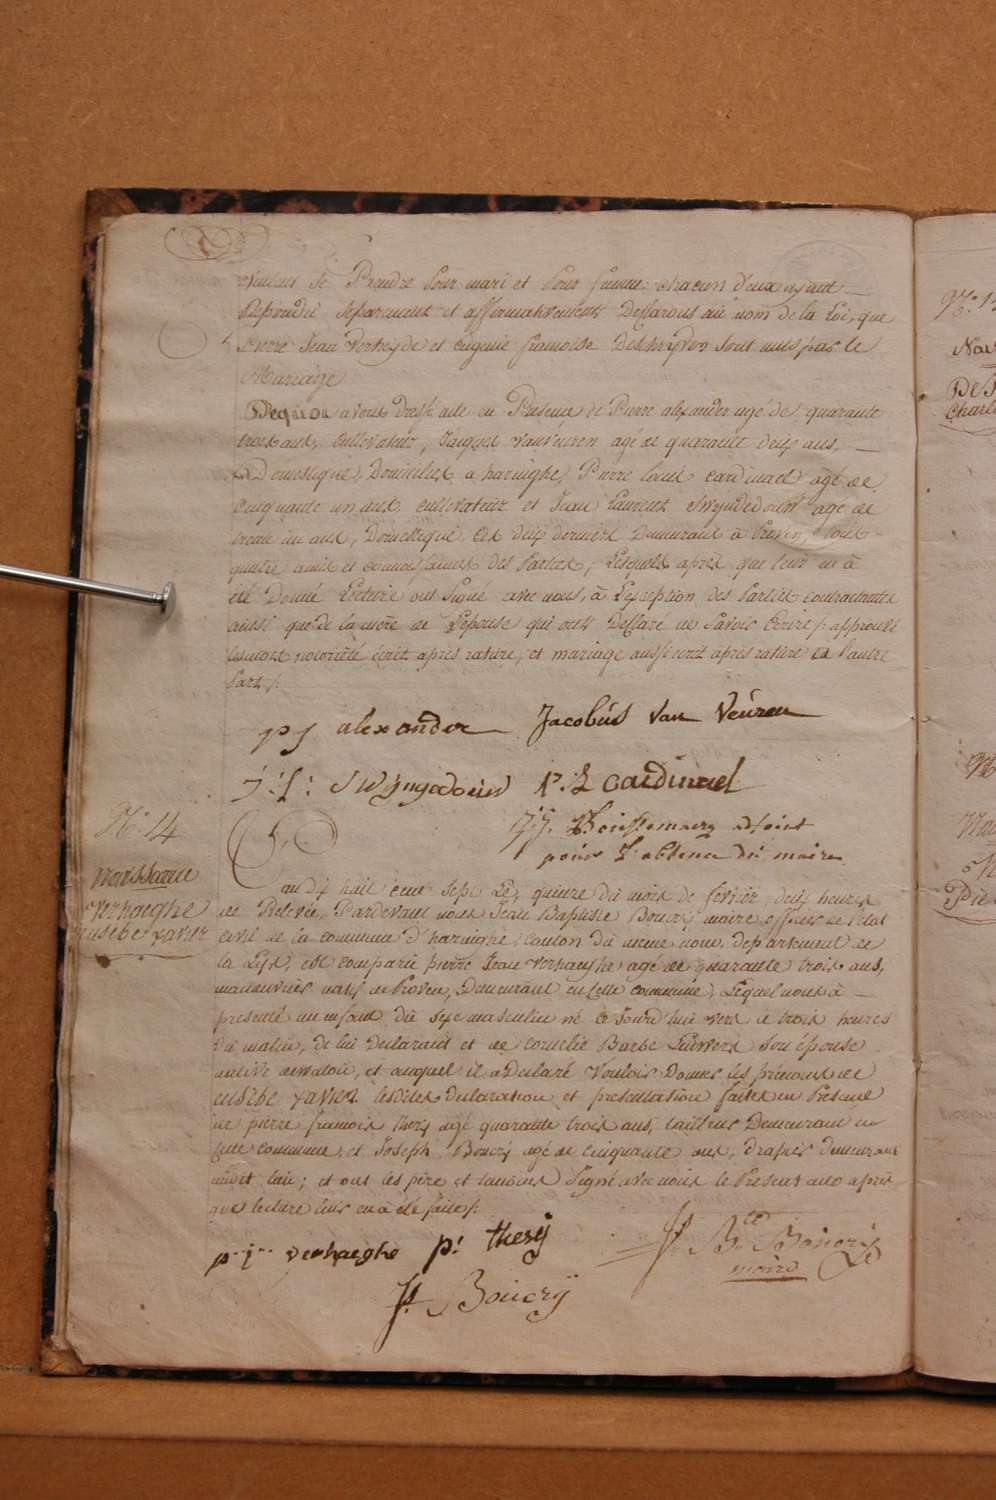 veulent se Prendre pour mari et pour femme: chacun d'eux ayant
Repondu separement et affirmativement Desclarons au nom de la Loi, que
Pierre Jean Verheyde et eugenie francoise Deschryver sont unis par le
Mariage
Dequoi avons dressé acte en Presence de Pierre alexander agé de quarante
trois ans, cultivateur, Jacques vanveuren agé de quarante deux ans,
Domestique, Domicilies a haringhe, Pierre Louis cardinael agé de
cinquante un ans cultivateur et Jean Laurent Swyngedouw agé de
trente un ans, Domestique ces deux derniers Demeurant à Proven, tous
quatre amis et connoissances des Parties, Lesquels après que leur en à
été Donné Lecture ont signé avec nous, à L'exception des Parties contractantes
ainsi que de la mere de L'epouse qui ont Desclaré ne savoir Ecrire /: approuvé
les mots notoriété ecrit après rature, et mariage aussi ecrit après rature de l'autre
Part:/
p j alexander Jacobus van Veuren
j: l: swyngedouw P. L cardinael
adjoint
pour L'absence du maire
N.° 14
Naissance
Verhaeghe
Eusebe xavier
L'an dix huit cent sept Le quinze du mois de fevrier, deux heures
de Relevée, Pardevant nous Jean Baptiste Boucry maire officier de l'etat
civil de la commune d'haringhe, canton du meme nom, departement de
la Lys, est comparu pierre Jean verhaeghe agé de quarante trois ans,
manouvrier natif de Proven, Demeurant en cette commune, Lequel nous à
presenté un enfant du sexe masculin né ce jourd'hui vers les trois heures
du matin, de lui Declarant et de cornelie Barbe son épouse
native de watou, et auquel il a Declaré Vouloir Donner les prénoms de
eusebe xavier Lesdites declaration et presentation faites en Presence
de pierre francois thery agé quarante trois ans, Demeurant en
cette commune, et Joseph Boucry agé de cinquante ans, Drapier demeurant
audit lieu; et ont les père et temoins Signé avec nous le Present acte après
que lecture leur en a été faite /.
p. j. verhaeghe p. f thery J. B.te Boucry
maire
J. Boucry
N.° 1
Nai
Des
Charle
N
Ma
Pie